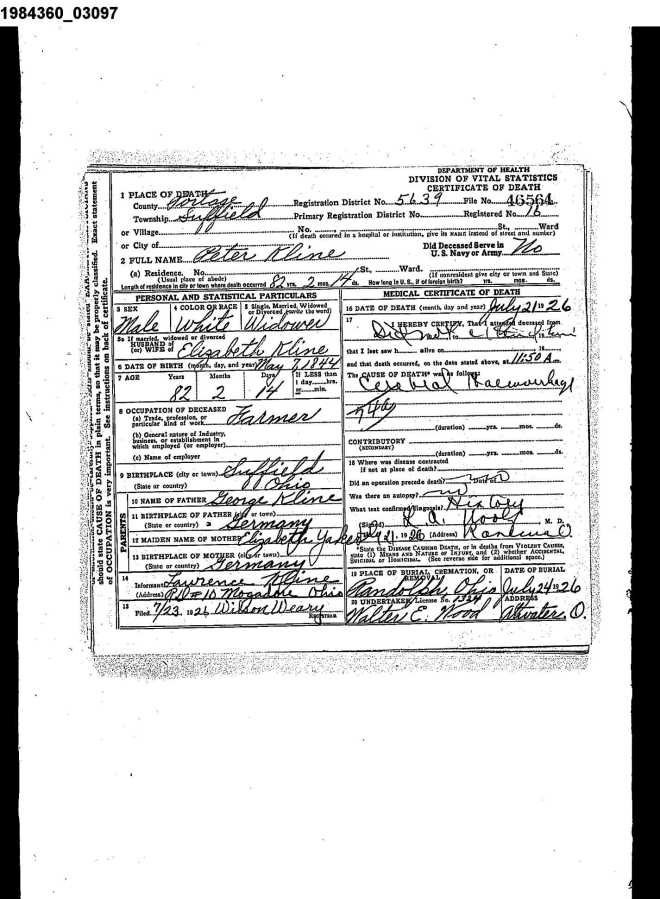 1984360_03097
DEPARTMENT OF HEALTH
DIVISION OF VITAL STATISTICS
CERTIFICATE OF DEATH
1 PLACE OF DEATH
County Portage Registration District No. 5639 File No. 46564
Township Suffield Primary Registration District No. Registered No. 16
or Village No. St., Ward
(If death occurred in a hospital or institution, give its NAME instead of street and number)
or City of Did Deceased Serve in
2 FULL NAME Peter Kline U. S. Navy or Army No
(a) Residence. No. St., Ward.
(Usual place of abode) (If nonresident give city or town and State)
Length of residence in city or town where death occurred 82 yrs. 2 mos. 14 ds. How long in U. S., if of foreign birth? yrs. mos. ds.
PERSONAL AND STATISTICAL PARTICULARS
3 SEX 4 COLOR OR RACE 5 Single, Married, Widowed
or Divorced (write the word)
Male White Widower
5a If married, widowed or divorced
HUSBAND of
(or) WIFE of Elizabeth Kline
6 DATE OF BIRTH (month, day, and year) May 7, 1844
7 AGE Years Months Days If LESS than
1 day hrs.
or min.
82 2 14
8 OCCUPATION OF DECEASED
(a) Trade, profession, or
particular kind of work Farmer
(b) General nature of Industry,
business, or establishment in
which employed (or employer)
(c) Name of employer
9 BIRTHPLACE (city or town) Suffield
(State or country) Ohio
PARENTS
10 NAME OF FATHER George Kline
11 BIRTHPLACE OF FATHER (city or town)
(State or country) Germany
12 MAIDEN NAME OF MOTHER Elizabeth
13 BIRTHPLACE OF MOTHER (city or town)
(State or country) Germany
14
Informant Lawrence Kline
(Address) RD #10 Mogadore Ohio
15
Filed 7/23, 1926 Wilson Weary
REGISTRAR
MEDICAL CERTIFICATE OF DEATH
16 DATE OF DEATH (month, day and year) July 21 1926
17
I HEREBY CERTIFY, That I attended deceased from
Did not
that I last saw h alive on 19
and that death occurred, on the date stated above, at 11:50 A m.
The CAUSE OF DEATH* was as follows:
Cerebral Haemorrhage
(duration) yrs. mos. ds.
CONTRIBUTORY
(SECONDARY)
(duration) yrs. mos. ds.
18 Where was disease contracted
if not at place of death?
Did an operation precede death? Date of
Was there an autopsy? no
What test confirmed diagnosis? History
(Signed) M. D.
21, 1926 (Address)
*State the DISEASE CAUSING DEATH, or in deaths from VIOLENT CAUSES,
state (1) MEANS AND NATURE OF INJURY, and (2) whether ACCIDENTAL,
SUICIDAL or HOMICIDAL. (See reverse side for additional space.)
19 PLACE OF BURIAL, CREMATION, OR
REMOVAL DATE OF BURIAL
Randolph, Ohio July 24 1926
20 UNDERTAKER, License No. 1324 ADDRESS
Walter E. Wood Atwater, O.
should state CAUSE OF DEATH in plain terms, so that it may be properly classified. Exact statement
of OCCUPATION is very important. See instructions on back of certificate.